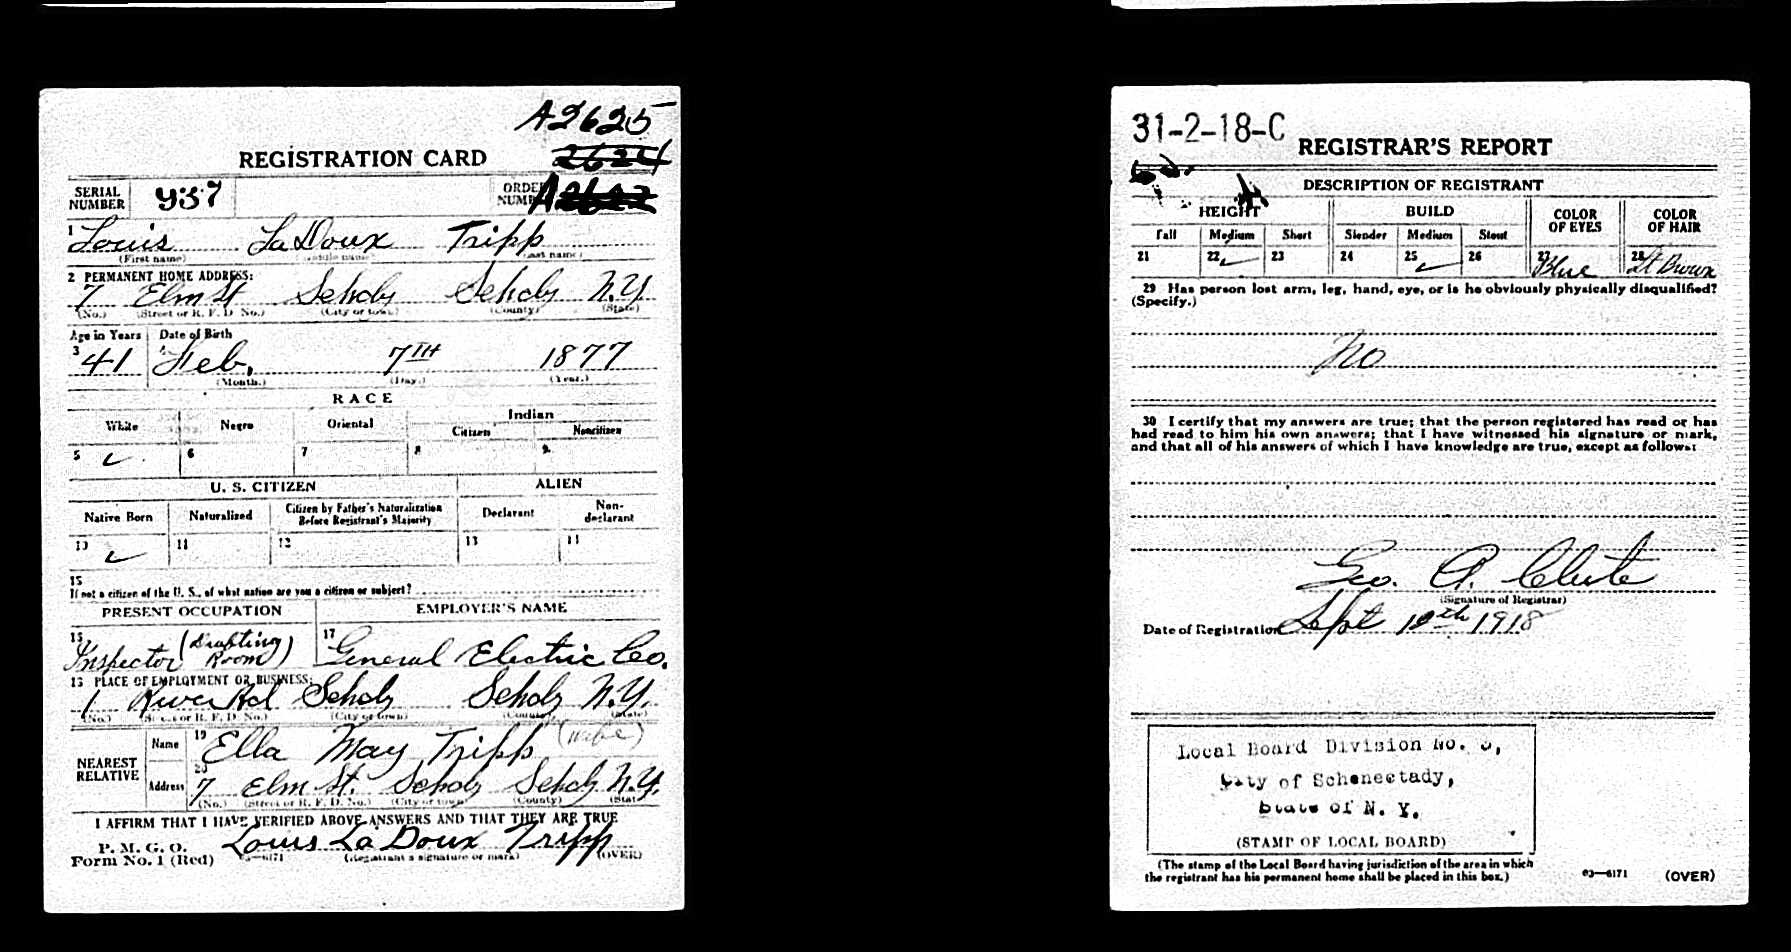 A2625
REGISTRATION CARD 2624
SERIAL NUMBER 937 ORDER NUMBER A
1 Louis LaDoux Tripp
(First name) (Middle name) (Last name)
2 PERMANENT HOME ADDRESS:
7 Elm St Schdy Schdy N.Y
(No.) (Street or R. F. D. No.) (City or town) (County) (State)
Age in Years Date of Birth
3 41 4 Feb. 7TH 1877
(Month.) (Day.) (Year.)
RACE
White Negro Oriental Indian
Citizen Noncitizen
5 ✓ 6 7 8 9
U. S. CITIZEN ALIEN
Native Born Naturalized Citizen by Father's Naturalization Before Registrant's Majority Declarant Non-declarant
10 ✓ 11 12 13 14
15
If not a citizen of the U. S., of what nation are you a citizen or subject?
PRESENT OCCUPATION EMPLOYER'S NAME
16 Inspector (Drafting Room) 17 General Electric Co.
18 PLACE OF EMPLOYMENT OR BUSINESS:
1 River Rd Schdy Schdy N.Y.
(No.) (Street or R. F. D. No.) (City or town) (County) (State)
NEAREST RELATIVE
Name 19 Ella May Tripp (wife)
Address 20 7 Elm St. Schdy Schdy N.Y.
(No.) (Street or R. F. D. No.) (City or town) (County) (State)
I AFFIRM THAT I HAVE VERIFIED ABOVE ANSWERS AND THAT THEY ARE TRUE
P. M. G. O.
Form No. 1 (Red) Louis La Doux Tripp
03—6171 (Registrant's signature or mark) (OVER)
31-2-18-C
REGISTRAR'S REPORT
DESCRIPTION OF REGISTRANT
HEIGHT BUILD COLOR OF EYES COLOR OF HAIR
Tall Medium Short Slender Medium Stout
21 22 ✓ 23 24 25 ✓ 26 27 Blue 28 Lt Brown
29 Has person lost arm, leg, hand, eye, or is he obviously physically disqualified?
(Specify.)
No
30 I certify that my answers are true; that the person registered has read or has
had read to him his own answers; that I have witnessed his signature or mark,
and that all of his answers of which I have knowledge are true, except as follows:
Geo. A. Clute
(Signature of Registrar)
Date of Registration Sept 12th 1918
Local Board Division No. 3,
City of Schenectady,
State of N. Y.
(STAMP OF LOCAL BOARD)
(The stamp of the Local Board having jurisdiction of the area in which
the registrant has his permanent home shall be placed in this box.)
03—6171 (OVER)